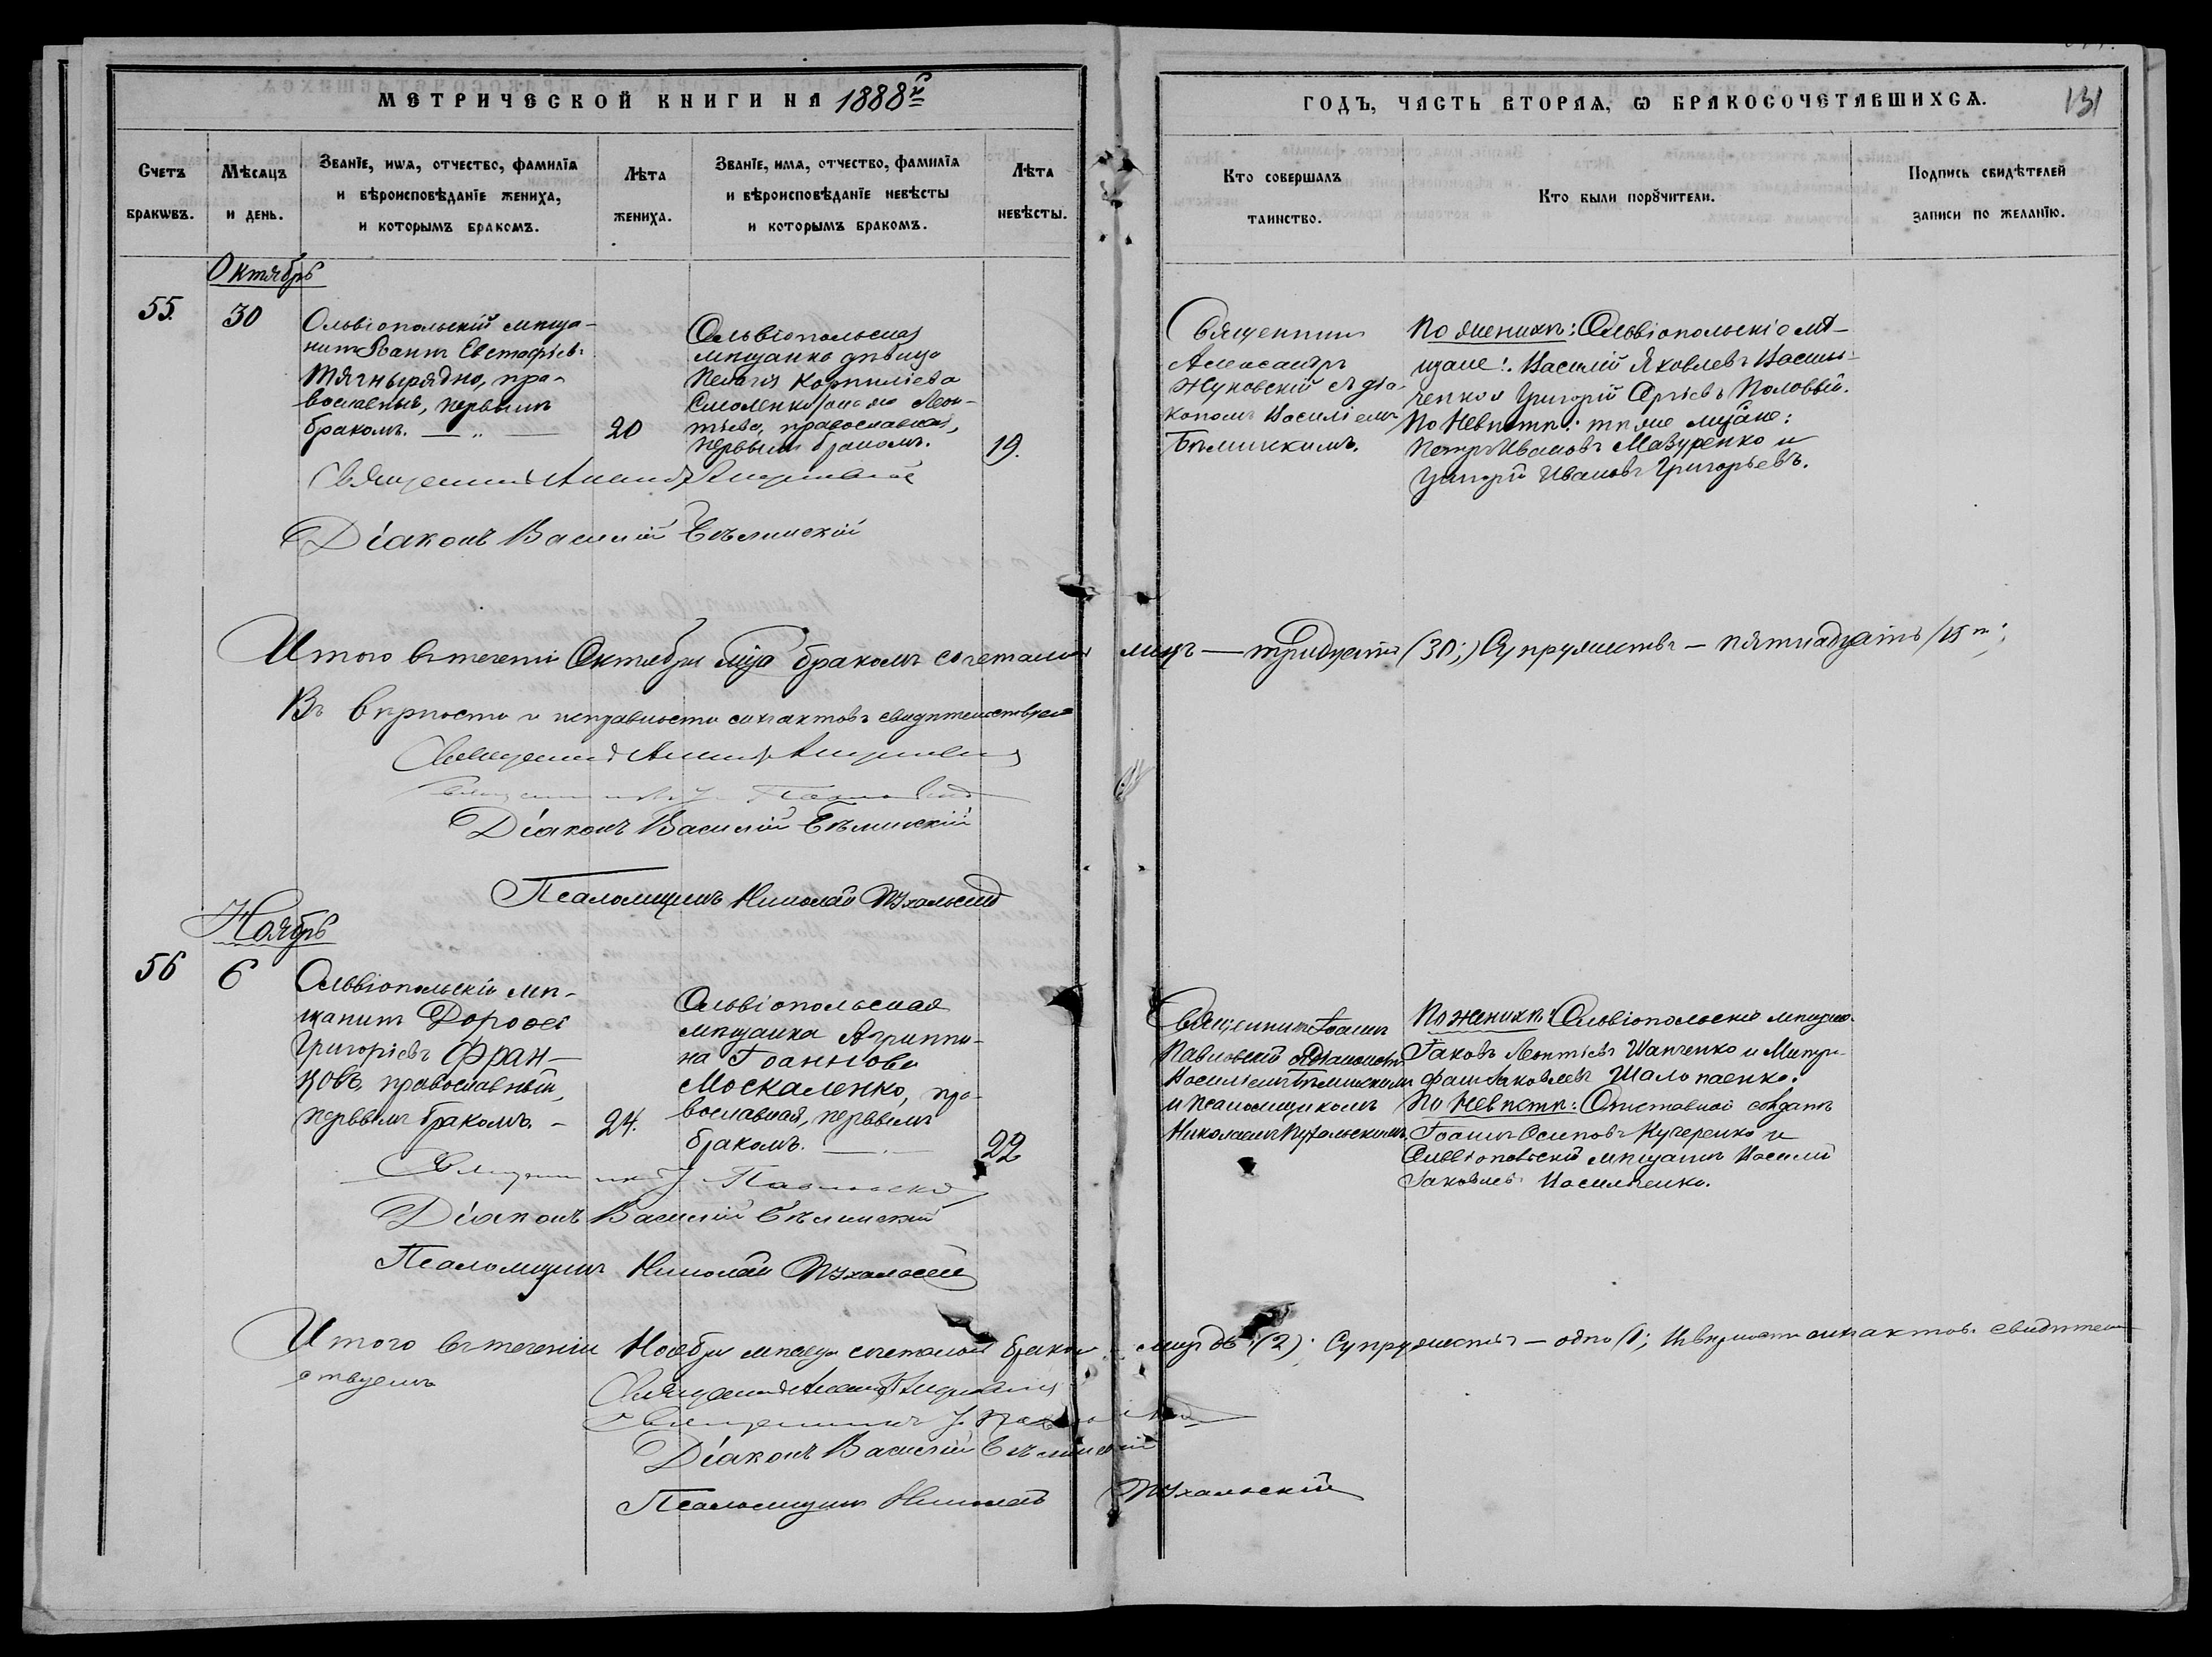 МЕТРИЧЕСКОЙ КНИГИ НА 1888й
ГОДЪ, ЧАСТЬ ВТОРАЯ, Ѡ БРАКОСОЧЕТАВШИХСЯ.
131
Счетъ браковъ.
Мѣсяцъ и день.
Званіе, имя, отчество, фамилія
и вѣроисповѣданіе жениха,
и которымъ бракомъ.
Лѣта жениха.
Званіе, имя, отчество, фамилія
и вѣроисповѣданіе невѣсты
и которымъ бракомъ.
Лѣта невѣсты.
Кто совершалъ таинство.
Кто были поручители.
Подпись свидѣтелей записи по желанію.
Октябрь
55.
30
Ольвіопольскій мѣща-
нинъ Іоаннъ Евстафіевъ
Тягнырядно, пра-
вославный, первымъ
бракомъ.
20
Ольвіопольская
мѣщанка дѣвица
Пелагія Корниліева
Смоленко она же Леон-
тьева, православная,
первымъ бракомъ.
19.
Священникъ
Александръ
Жуковскій съ діа-
кономъ Василіемъ
Бѣлинскимъ.
По женихѣ: Ольвіопольскіе мѣ-
щане: Василій Яковлевъ Василь-
ченко и Григорій Сергіевъ Половый.
По Невѣстѣ: тѣ же мѣщане:
Петръ Ивановъ Мазуренко и
Григорій Ивановъ Григорьевъ.
Священникъ
Діаконъ Василій Бѣлинскій
Итого въ теченіи Октября мѣсяца бракомъ сочеталось лицъ — тридцать (30;) Супружествъ — пятнадцать /15ть;
Въ вѣрности и исправности сихъ актовъ свидѣтельствуемъ
Священникъ
Священникъ І. Павловскій
Діаконъ Василій Бѣлинскій
Псаломщикъ Николай Пухальскій
Ноябрь
56
6
Ольвіопольскій мѣ-
щанинъ Дороѳей
Григоріевъ Фран-
ковъ, православный,
первымъ бракомъ. —
24.
Ольвіопольская
мѣщанка Агриппи-
на Іоаннова
Москаленко, пра-
вославная, первымъ
бракомъ.
22
Священникъ Іоаннъ
Павловскій съ діакономъ
Василіемъ Бѣлинскимъ
и псаломщикомъ
Николаемъ Пухальскимъ.
По женихѣ: Ольвіопольскіе мѣщане
Іаковъ Леонтіевъ Шапченко и Митро-
фанъ Іаковлевъ Шалопаенко.
По Невѣстѣ: Отставной солдатъ
Іоаннъ Осиповъ Кучеренко и
Ольвіопольскій мѣщанинъ Василій
Іаковлевъ Васильченко.
Священникъ І. Павловскій
Діаконъ Василій Бѣлинскій
Псаломщикъ Николай Пухальскій
Итого въ теченіи Ноября мѣсяца сочеталось бракомъ лицъ двѣ (2); Супружествъ — одно /1; Въ вѣрности сихъ актовъ свидѣтель-
ствуемъ
Священникъ
Священникъ І. Павловскій
Діаконъ Василій Бѣлинскій
Псаломщикъ Николай Пухальскій